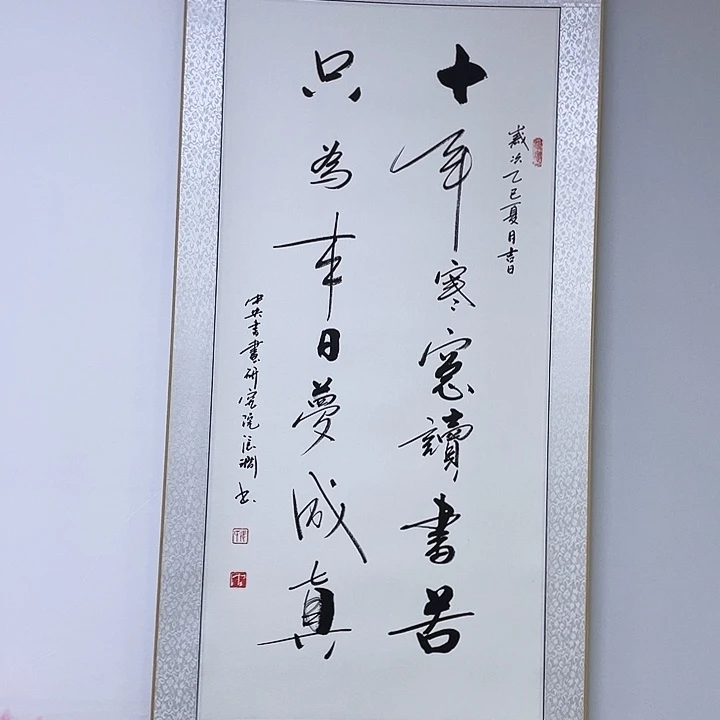 歲次乙巳夏月吉日
十年寒窓讀書苦
只為来日夢成真
中央書畫研究院 书